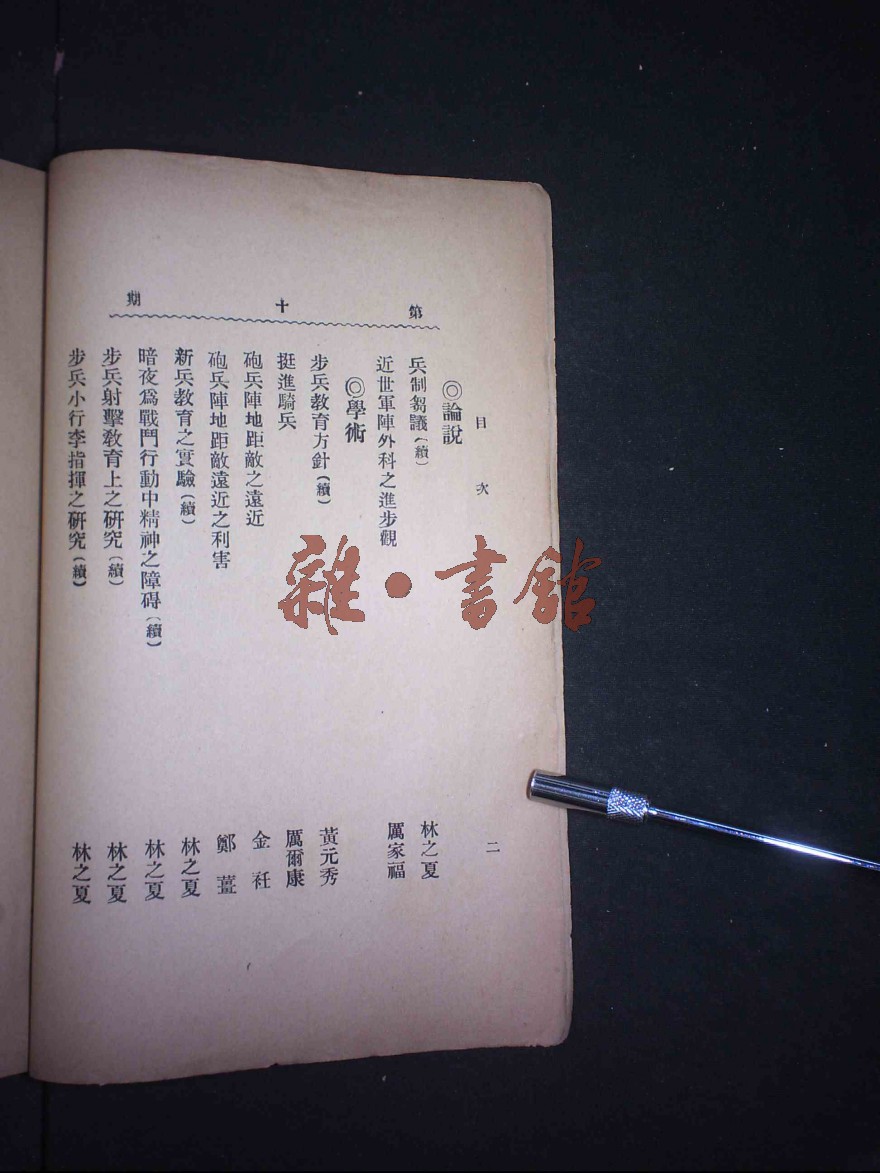 第十期
目次
二
◎論說
兵制芻議(續) 林之夏
近世軍陣外科之進步觀 厲家福
◎學術
步兵教育方針(續) 黃元秀
挺進騎兵 厲爾康
砲兵陣地距敵之遠近 金
砲兵陣地距敵遠近之利害 鄭薑
新兵教育之實驗(續) 林之夏
暗夜爲戰鬥行動中精神之障碍(續) 林之夏
步兵射擊教育上之研究(續) 林之夏
步兵小行李指揮之研究(續) 林之夏
雜·書館